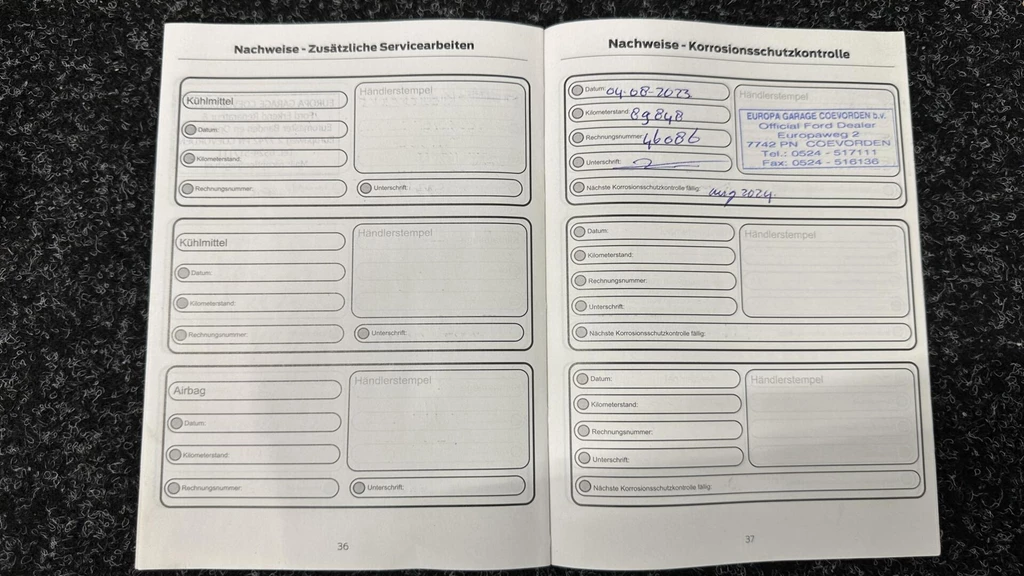 Nachweise - Zusätzliche Servicearbeiten
Kühlmittel
Händlerstempel
Datum:
Kilometerstand:
Rechnungsnummer:
Unterschrift:
Kühlmittel
Händlerstempel
Datum:
Kilometerstand:
Rechnungsnummer:
Unterschrift:
Airbag
Händlerstempel
Datum:
Kilometerstand:
Rechnungsnummer:
Unterschrift:
36
Nachweise - Korrosionsschutzkontrolle
Datum: 04-08-2023
Kilometerstand: 89848
Rechnungsnummer: 46086
Unterschrift:
Händlerstempel
EUROPA GARAGE COEVORDEN b.v.
Official Ford Dealer
Europaweg 2
7742 PN COEVORDEN
Tel.: 0524 - 517111
Fax: 0524 - 516136
Nächste Korrosionsschutzkontrolle fällig: aug 2024
Datum:
Händlerstempel
Kilometerstand:
Rechnungsnummer:
Unterschrift:
Nächste Korrosionsschutzkontrolle fällig:
Datum:
Händlerstempel
Kilometerstand:
Rechnungsnummer:
Unterschrift:
Nächste Korrosionsschutzkontrolle fällig:
37